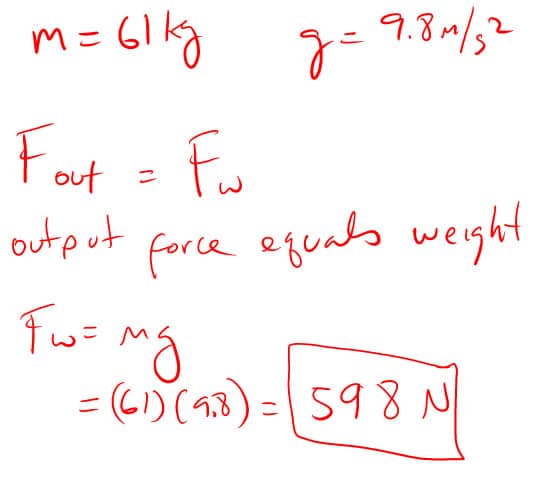 m = 61 kg g = 9.8 m/s²
F out = Fw
output force equals weight
Fw = mg
= (61)(9.8) = 598 N